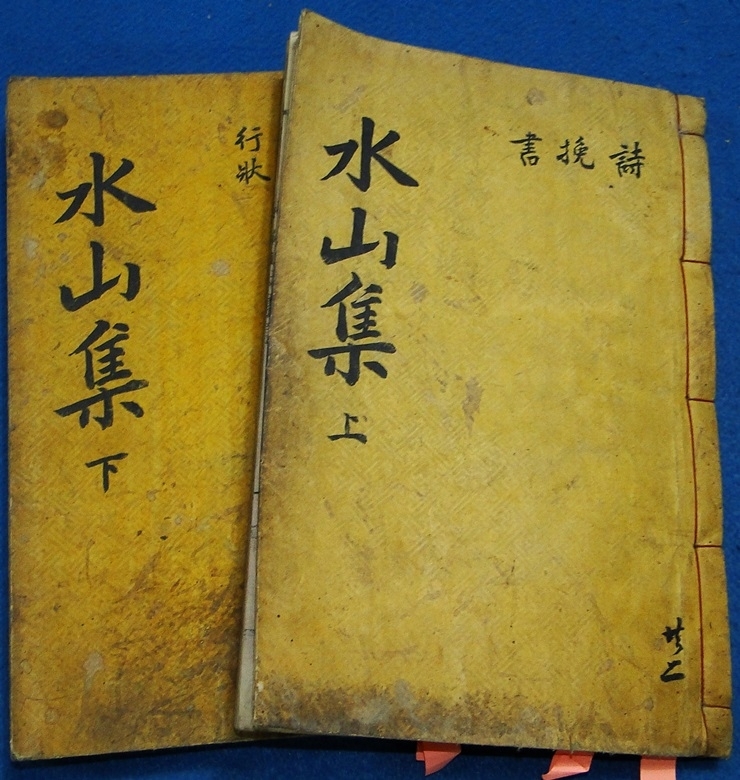 詩
挽
書
水山集 上
共二
行狀
水山集 下